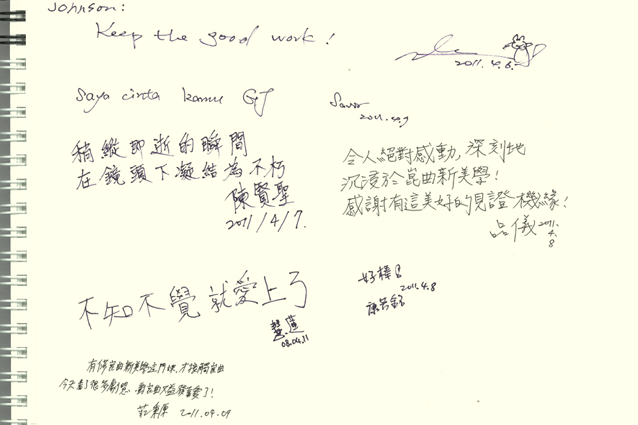 Johnson:
Keep the good work!
2011.4.6.
Saya cinta kamu GJ
2011.4.9
稍縱即逝的瞬間
在鏡頭下凝結為不朽
陳賢聖
2011/4/7.
令人絕對感動,深刻地
沉浸於崑曲新美學!
感謝有這美好的見證機緣!
品儀 2011.
4.
8
不知不覺就愛上了
慧蓮
08.04.11
好棒
2011.4.8
有修崑曲新美學這門課,才接觸崑曲
今天看了很多劇照,對崑曲
2011.04.09